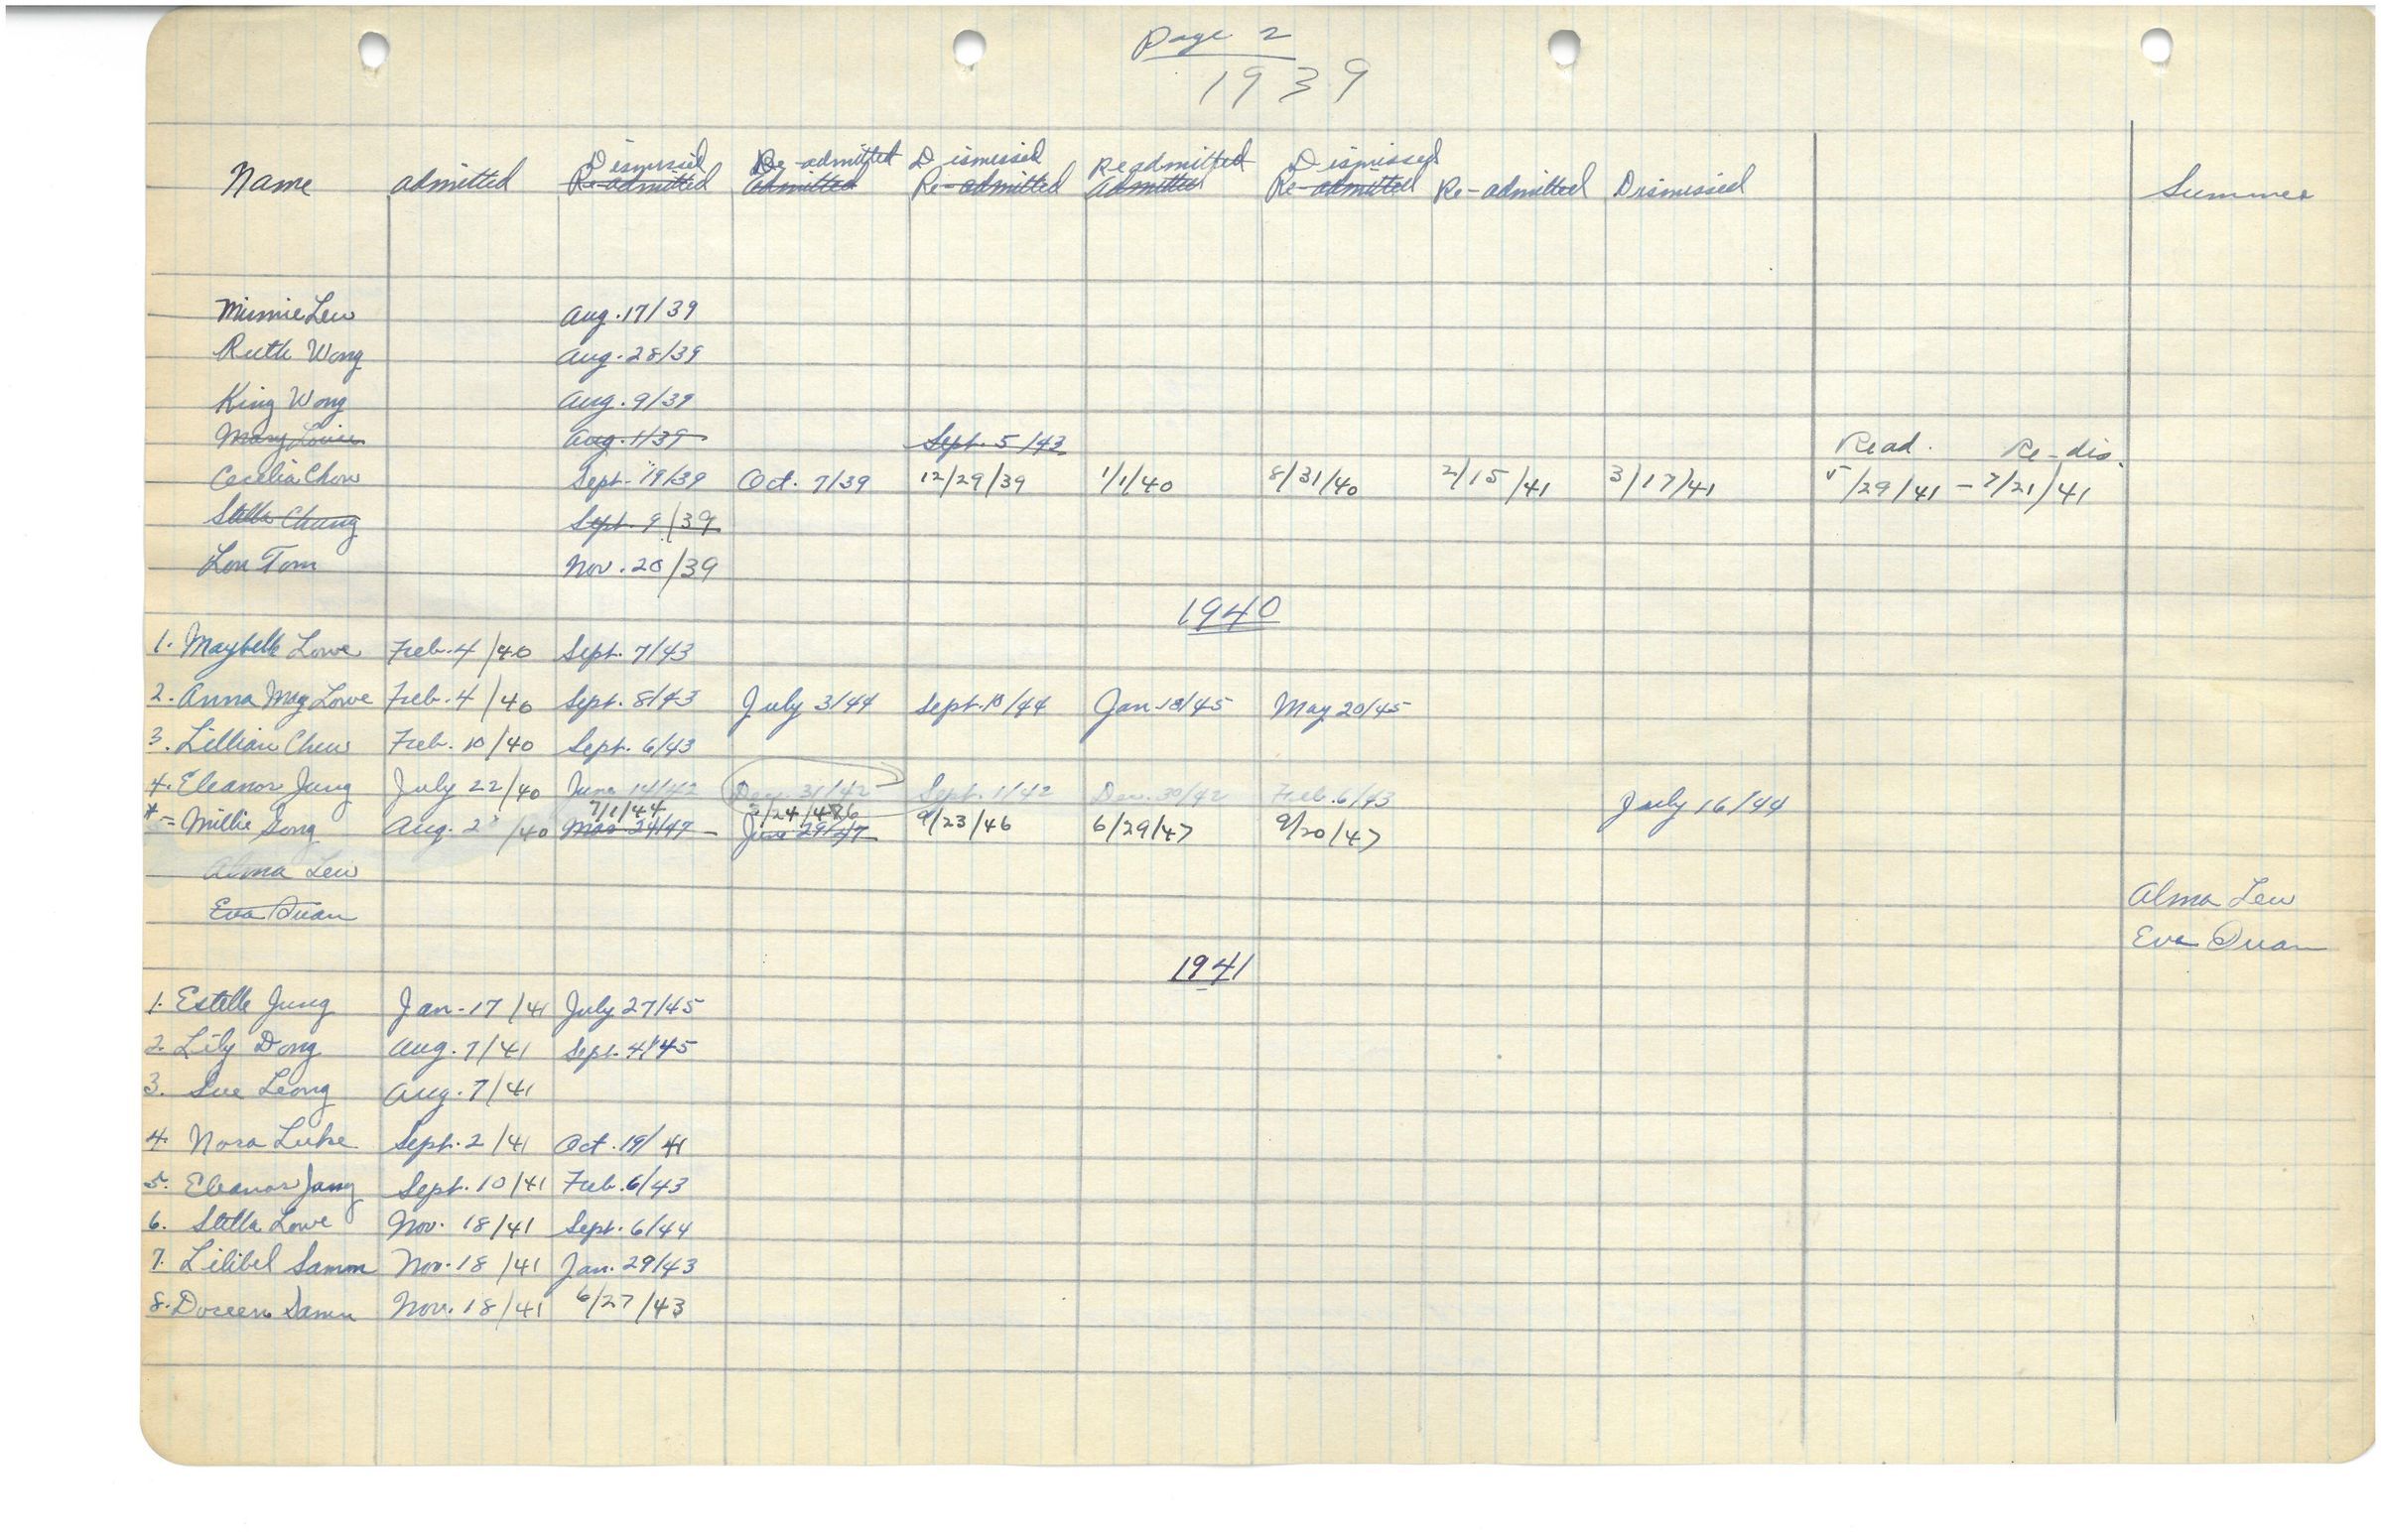 Page 2
1939
Dismissed Re-admitted Dismissed Readmitted Dismissed
Name admitted Re-admitted admitted Re-admitted admitted Re-admitted Re-admitted Dismissed Summer
Minnie Lew Aug. 17/39
Ruth Wong Aug. 28/39
King Wong Aug. 9/39
Mary Louise Aug. 1/39 Sept. 5/43 Read. Re-dis.
Cecelia Chow Sept. 19/39 Oct. 7/39 12/29/39 1/1/40 8/31/40 2/15/41 3/17/41 5/29/41 - 7/21/41
Stella Chung Sept. 9/39
Lon Tom Nov. 20/39
1940
1. Maybelle Lowe Feb. 4/40 Sept. 7/43
2. Anna May Lowe Feb. 4/40 Sept. 8/43 July 3/44 Sept. 10/44 Jan 18/45 May 20/45
3. Lillian Chew Feb. 10/40 Sept. 6/43
4. Eleanor Jung July 22/40 June 14/42 Dec. 31/42 Sept. 1/42 Dec. 30/42 Feb. 6/43 July 16/44
7/1/44 3/24/46
Millie Gong Aug. 2 /40 Mar 24/47 June 29/47 9/23/46 6/29/47 9/20/47
Alma Lew
Eva Quan Alma Lew
Eva Quan
1941
1. Estelle Jung Jan. 17/41 July 27/45
2. Lily Dong Aug. 7/41 Sept. 4/45
3. Sue Leong Aug. 7/41
4. Nora Luke Sept. 2/41 Oct. 19/41
5. Eleanor Jang Sept. 10/41 Feb. 6/43
6. Stella Lowe Nov. 18/41 Sept. 6/44
7. Lilibel Samm Nov. 18/41 Jan. 29/43
8. Doreen Samm Nov. 18/41 6/27/43